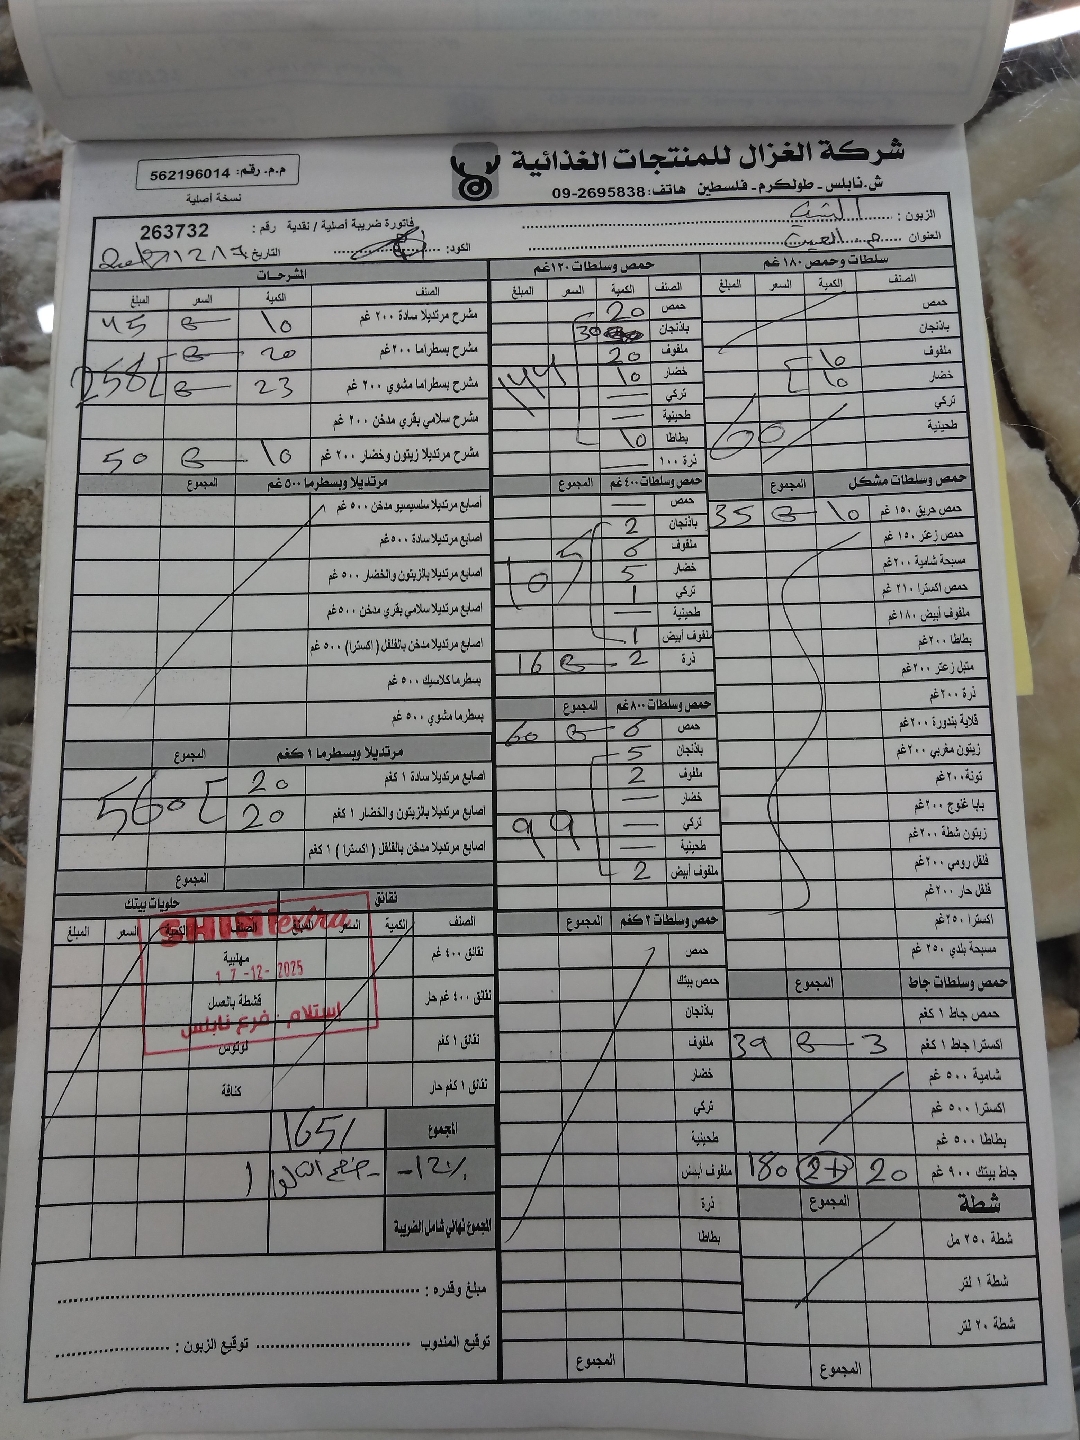 شركة الغزال للمنتجات الغذائية
ش.نابلس - طولكرم - فلسطين هاتف: 09-2695838
م.م. رقم: 562196014
نسخة أصلية
الزبون :
العنوان
فاتورة ضريبة أصلية / نقدية رقم : 263732
الكود:
التاريخ 17/12/
المشرحات
الصنف الكمية السعر المبلغ
مشرح مرتديلا سادة ٢٠٠ غم 10 45
مشرح بسطراما ٢٠٠غم 20
مشرح بسطراما مشوي ٢٠٠ غم 23 258
مشرح سلامي بقري مدخن ٢٠٠ غم
مشرح مرتديلا زيتون وخضار ٢٠٠ غم 10 50
مرتديلا وبسطرما ٥٠٠ غم المجموع
أصابع مرتديلا سلسيسيو مدخن ٥٠٠ غم
اصابع مرتديلا سادة ٥٠٠غم
اصابع مرتديلا بالزيتون والخضار ٥٠٠ غم
اصابع مرتديلا سلامي بقري مدخن ٥٠٠غم
اصابع مرتديلا مدخن بالفلفل ( اكسترا) ٥٠٠ غم
بسطرما كلاسيك ٥٠٠ غم
بسطرما مشوي ٥٠٠ غم
مرتديلا وبسطرما ١ كغم المجموع
اصابع مرتديلا سادة ١ كغم 20
اصابع مرتديلا بالزيتون والخضار ١ كغم 20 560
اصابع مرتديلا مدخن بالفلفل ( اكسترا ) ١ كغم
المجموع
نقانق حلويات بيتك
الصنف الكمية السعر المبلغ الصنف الكمية السعر المبلغ
نقانق ٤٠٠ غم مهلبية
نقانق ٤٠٠ غم حار قشطة بالعسل
نقانق ١ كغم لوتوس
نقانق ١ كغم حار كنافة
SHINI extra
17-12-2025
استلام فرع نابلس
المجموع 1651
-12%
المجموع نهائي شامل الضريبة
مبلغ وقدره :
توقيع المندوب توقيع الزبون :
حمص وسلطات ١٢٠غم
الصنف الكمية السعر المبلغ
حمص 20
باذنجان 30
ملفوف 20
خضار 10 144
تركي —
طحينية —
بطاطا 10
ذرة ١٠٠ —
حمص وسلطات ٤٠٠غم المجموع
حمص —
باذنجان 2
ملفوف 6
خضار 5 105
تركي 1
طحينية —
ملفوف أبيض 1
ذرة 2 16
حمص وسلطات ٨٠٠غم المجموع
حمص 6 60
باذنجان 5
ملفوف 2
خضار —
تركي — 99
طحينية —
ملفوف أبيض 2
حمص وسلطات ٢كغم المجموع
حمص
حمص بيتك
باذنجان
ملفوف
خضار
تركي
طحينية
ملفوف أبيض
ذرة
بطاطا
المجموع
سلطات وحمص ١٨٠غم
الصنف الكمية السعر المبلغ
حمص
باذنجان
ملفوف 10
خضار 10
تركي
طحينية 60
حمص وسلطات مشكل المجموع
حمص حريق ١٥٠ غم 10 35
حمص زعتر ١٥٠ غم
مسبحة شامية ٢٠٠غم
حمص اكسترا ٢١٠ غم
ملفوف أبيض ١٨٠غم
بطاطا ٢٠٠غم
متبل زعتر ٢٠٠غم
ذرة ٢٠٠غم
قلاية بندورة ٢٠٠غم
زيتون مغربي ٢٠٠غم
تونة٢٠٠غم
بابا غنوج ٢٠٠غم
زيتون شطة ٢٠٠غم
فلفل رومي ٢٠٠غم
فلفل حار ٢٠٠غم
اكسترا ٢٥٠غم
مسبحة بلدي ٢٥٠ غم
حمص وسلطات جاط المجموع
حمص جاط ١ كغم
اكسترا جاط ١ كغم 3 39
شامية ٥٠٠ غم
اكسترا ٥٠٠ غم
بطاطا ٥٠٠ غم
جاط بيتك ٩٠٠ غم 20 2+ 180
شطة المجموع
شطة ٢٥٠ مل
شطة ١ لتر
شطة ٢٠ لتر
المجموع